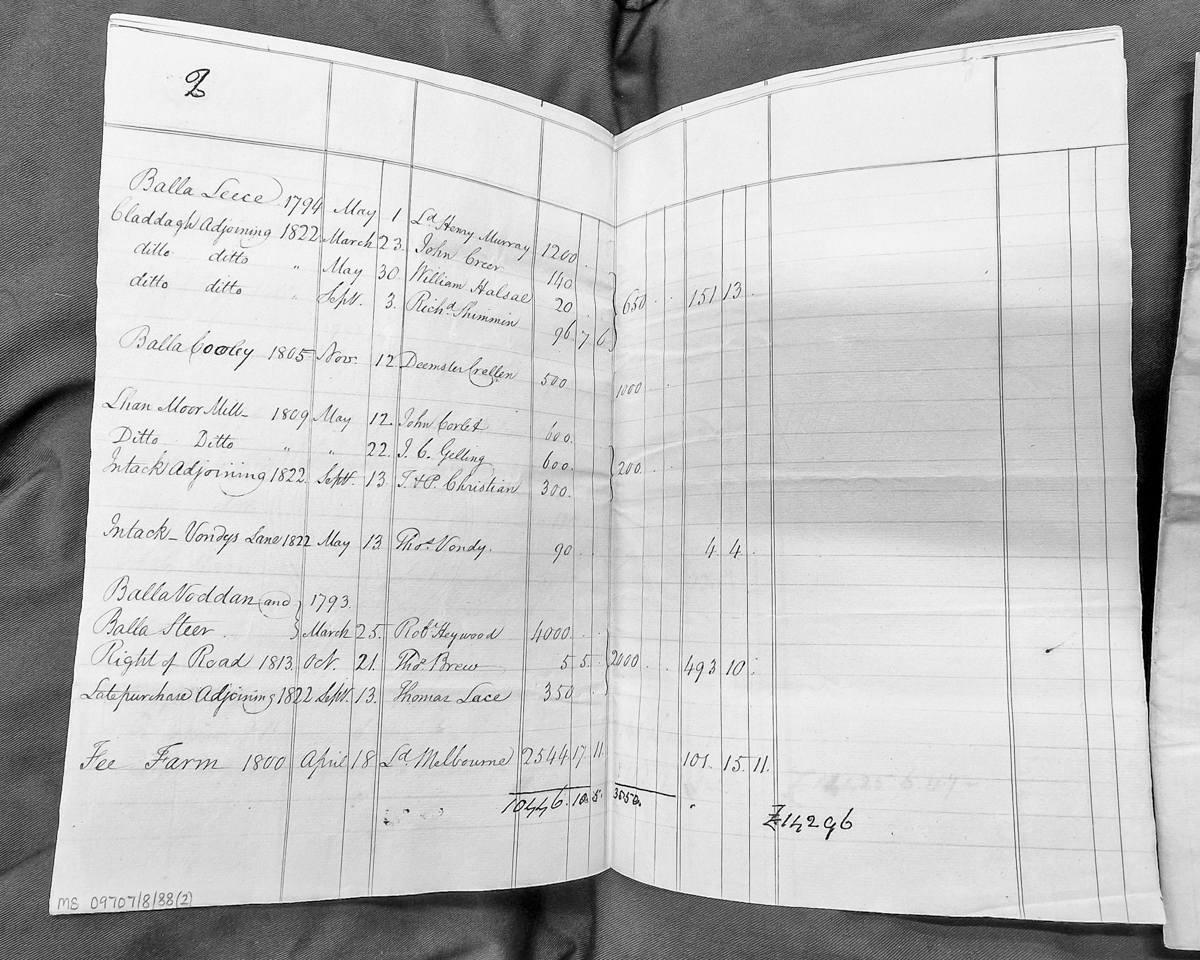 2
Balla Leece 1794 May 1 Ld. Henry Murray 1200
Claddagh Adjoining 1822 March 23. John Creer 140
ditto ditto " May 30. William Halsal 20 650 151 13
ditto ditto " Sept. 3. Richd. Shimmin 96 7 6
Balla Cooley 1805 Nov. 12 Deemster Crellen 500 1000
Lhan Moor Mill 1809 May 12. John Corlet 600
Ditto Ditto " " 22. J. C. Gelling 600 200
Intack Adjoining 1822 Sept. 13 T. & P. Christian 300
Intack Vondys Lane 1822 May 13. Thos. Vondy. 90 4 4
Balla Voddan and 1793
Balla Steer March 25. Robt. Heywood 4000
Right of Road 1813. Oct. 21. Thos. Brew 5 5 2000 493 10
Late purchase Adjoining 1822 Sept. 13. Thomas Lace 350
Fee Farm 1800 April 18 Ld. Melbourne 2544 17 11 101 15 11
10446. 10. 5. 3850.
£14296
MS 09707/8/88(2)